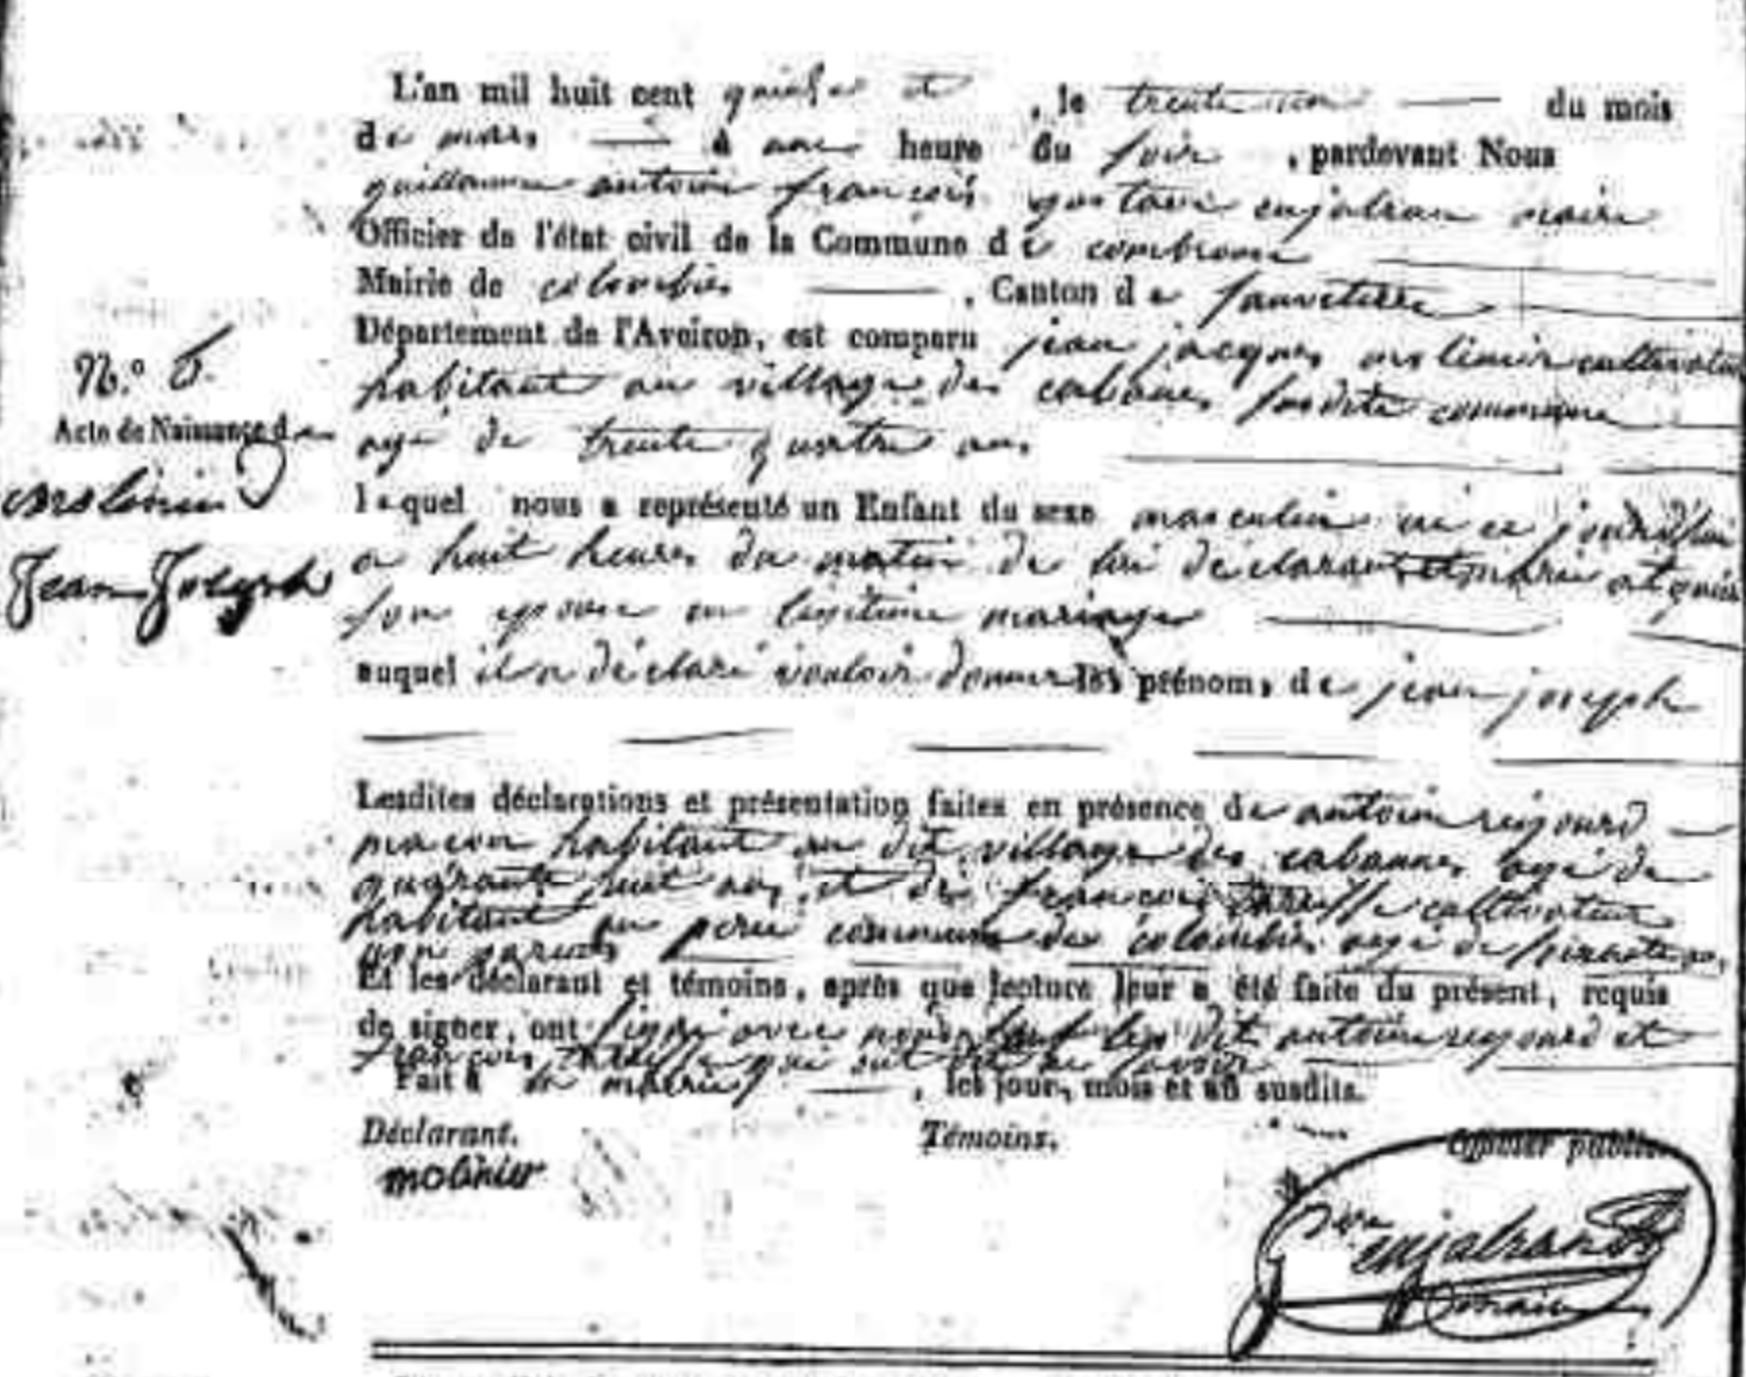 L'an mil huit cent , le trente un du mois
de mars à une heure du soir , pardevant Nous
guillaume antoine françois gustave enjalran maire
Officier de l'état civil de la Commune de combrouse
Mairie de colombiès , Canton de sauveterre
Département de l'Aveiron, est comparu jean jacques molinier cultivateur
habitant au village des cabanes susdite commune
agé de trente quatre ans
lequel nous a représenté un Enfant du sexe masculin né ce jourd'hui
a huit heures du matin de lui déclarant et marie
son epouse en legitime mariage
auquel il a déclaré vouloir donner les prénoms de jean joseph
N.º 6.
Acte de Naissance de
molinier
Jean Joseph
Lesdites déclarations et présentation faites en présence de antoine
macon habitant au dit village des cabanes agé de
quarante huit ans et de françois cultivateur
habitant au commune de colombiès agé de soixante ans
Et les déclarant et témoins, après que lecture leur a été faite du présent, requis
de signer, ont signé avec nous sauf les dit antoine et
françois qui ont dit ne savoir
Fait à la mairie , les jour, mois et an susdits.
Déclarant. Témoins. Officier public.
molinier
enjalran
maire